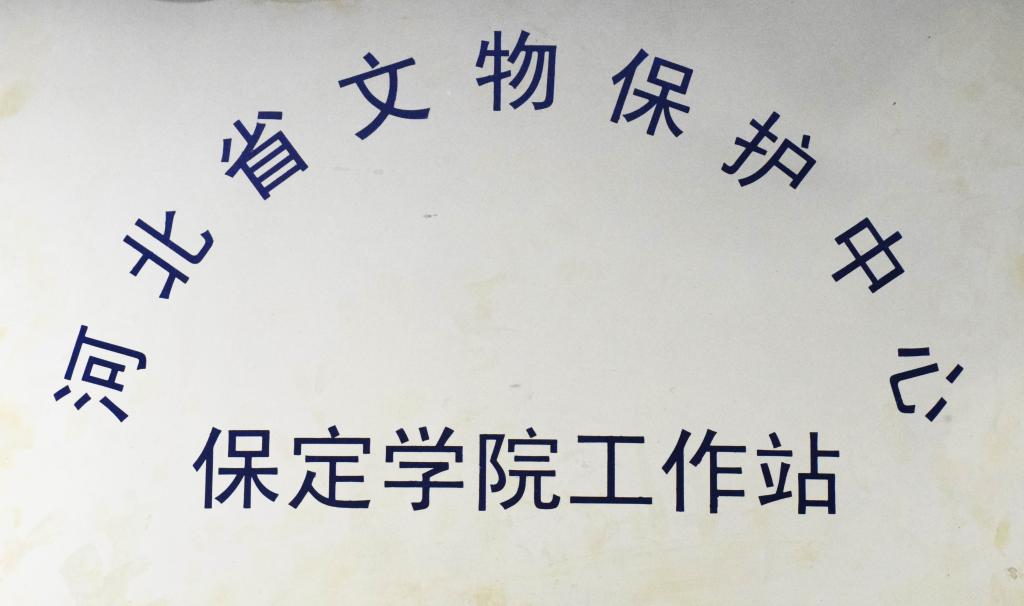 河北省文物保护中心
保定学院工作站